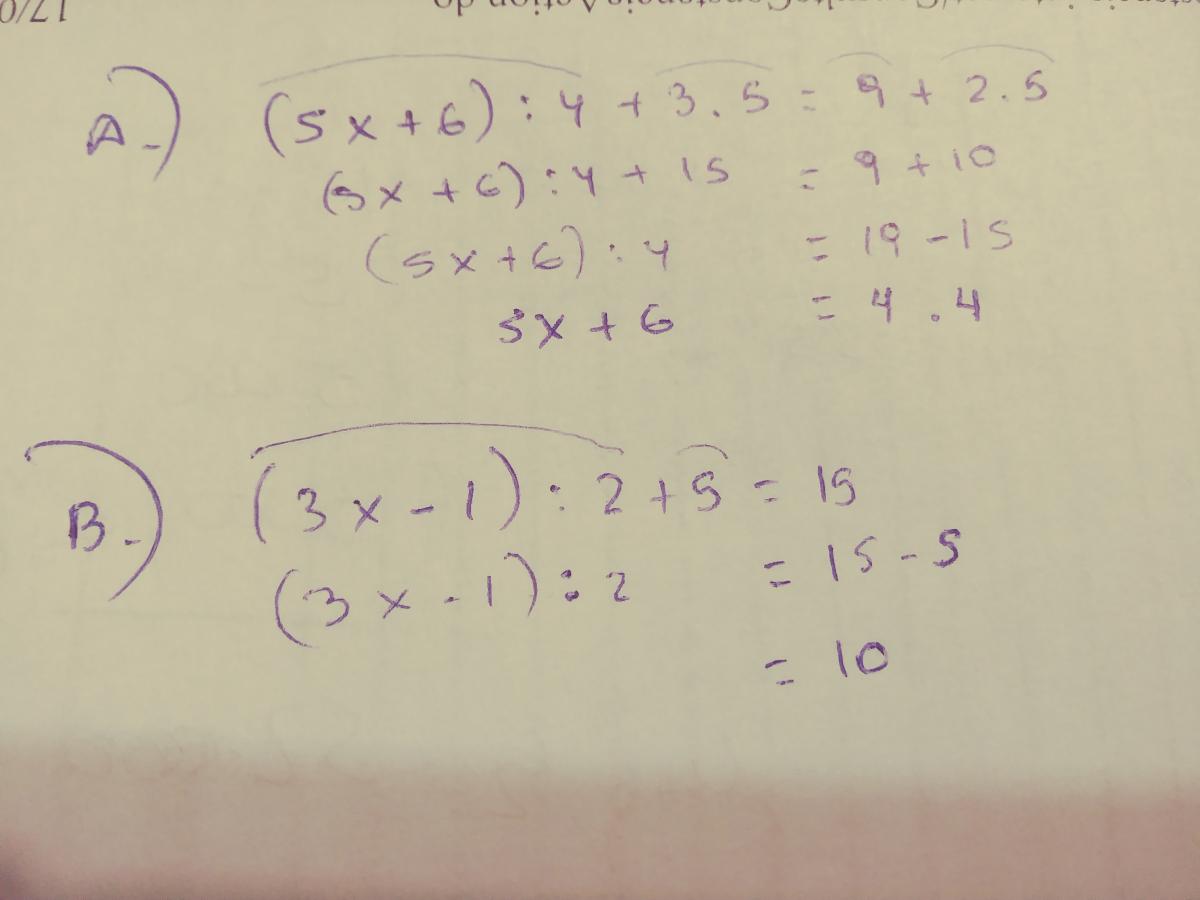 A.) (5x + 6) : 4 + 3 . 5 = 9 + 2 . 5
(5x + 6) : 4 + 15 = 9 + 10
(5x + 6) : 4 = 19 - 15
5x + 6 = 4 . 4
B.) (3x - 1) : 2 + 5 = 15
(3x - 1) : 2 = 15 - 5
= 10